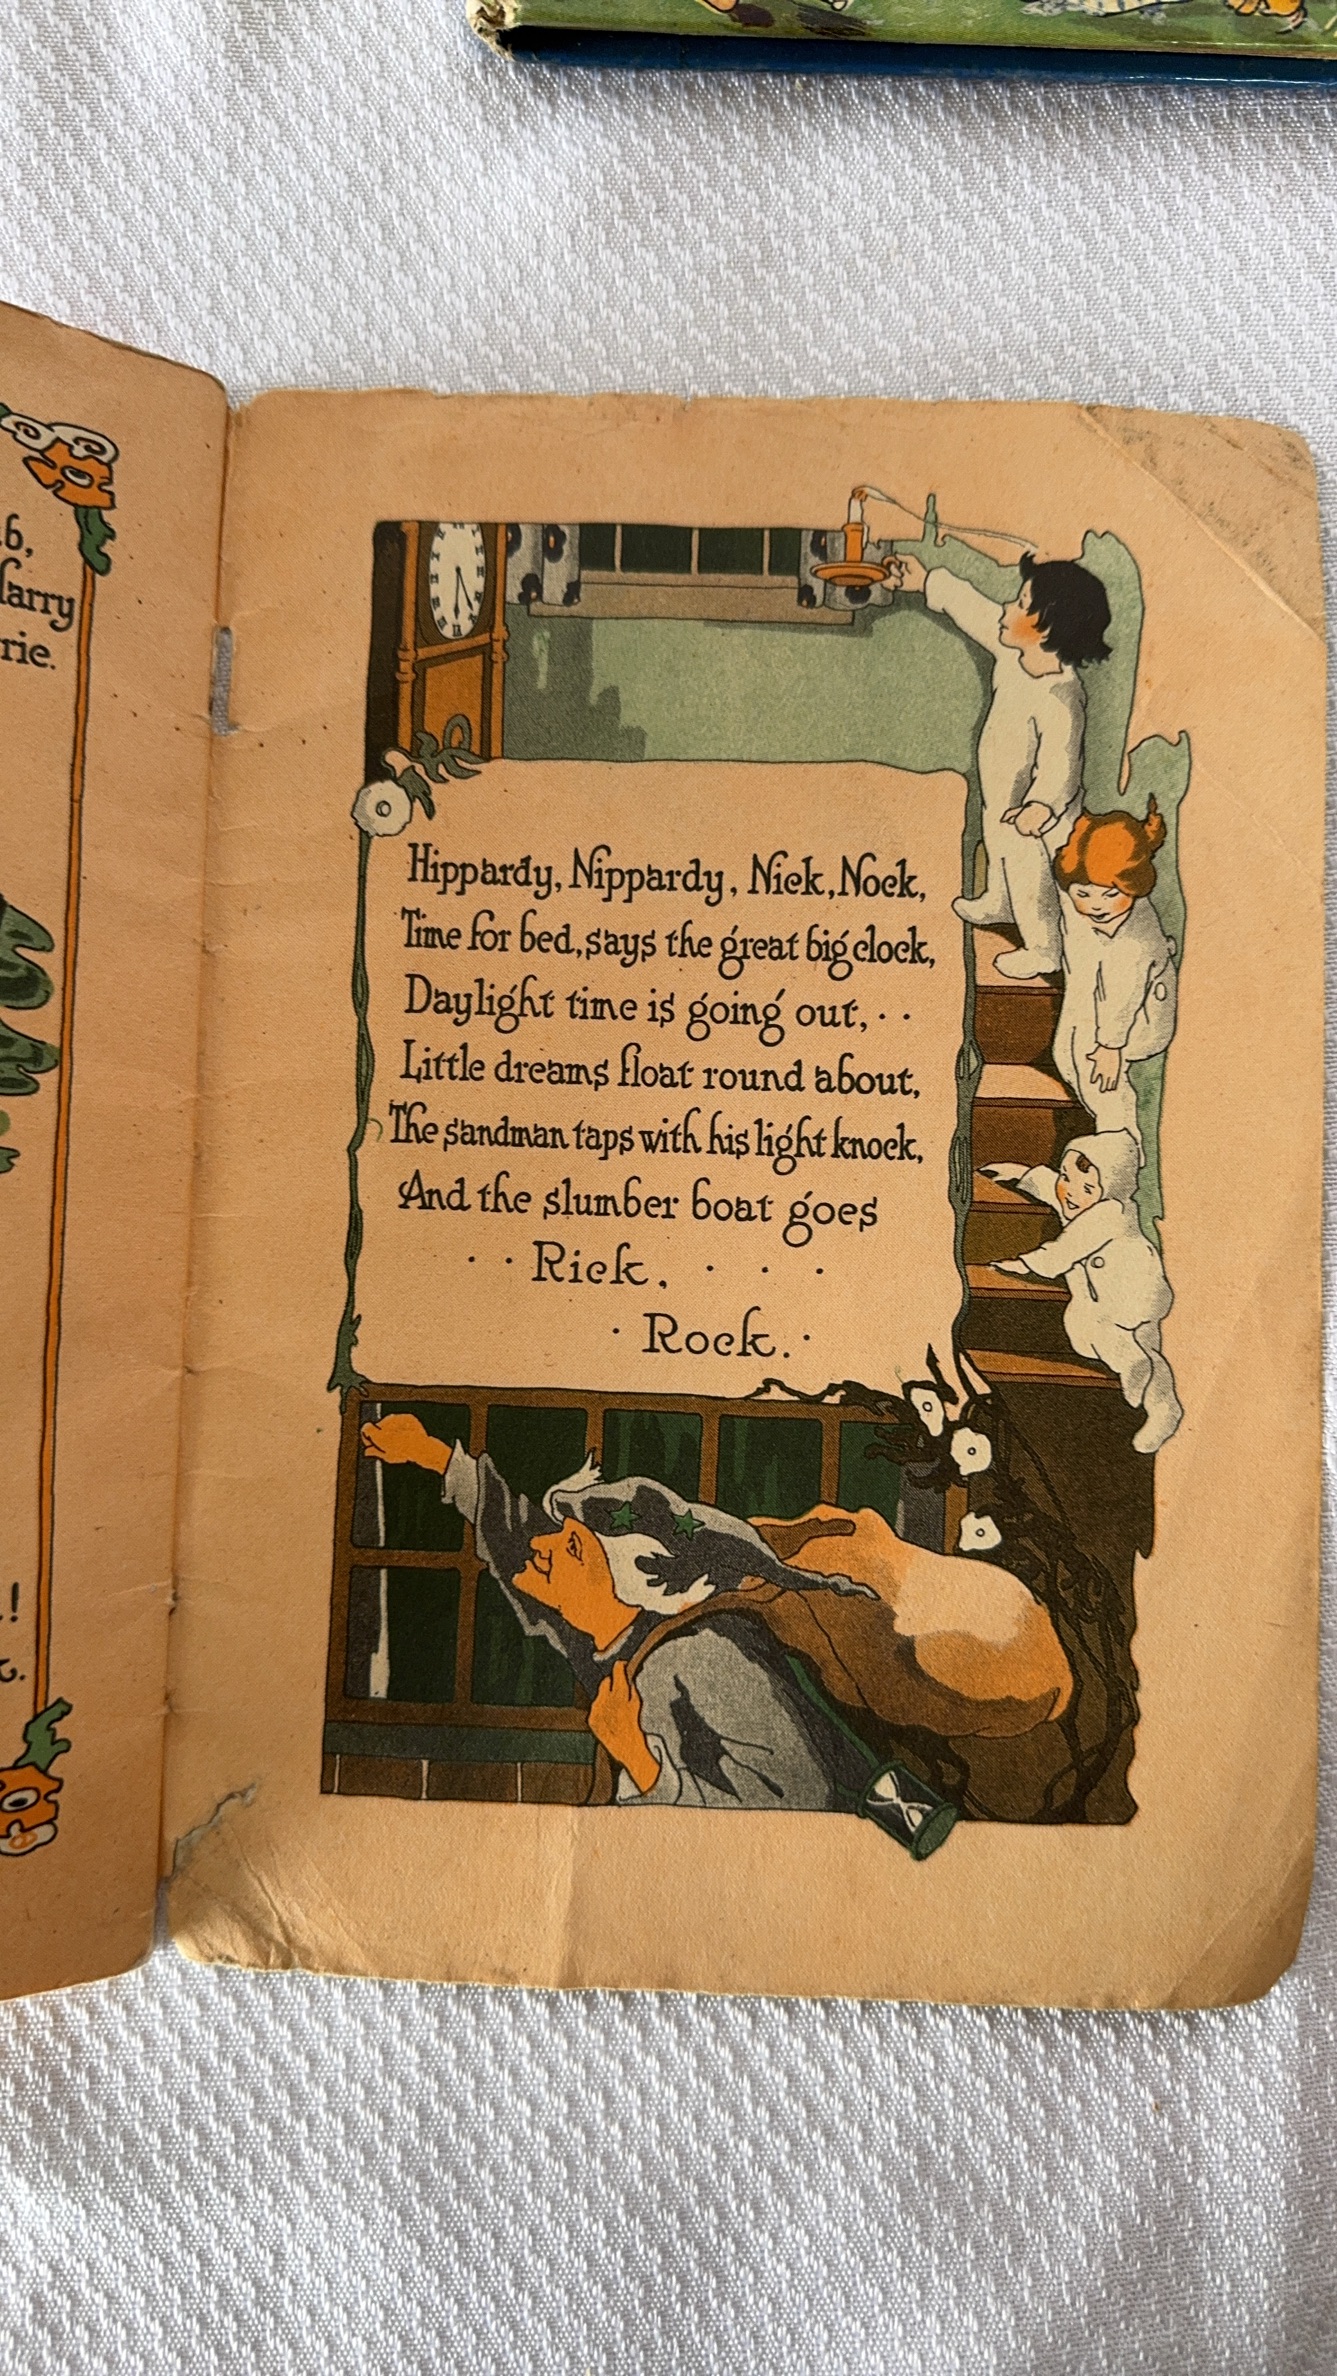 6,
Harry
rie.
!
Hippardy, Nippardy, Nick, Nock,
Time for bed, says the great big clock,
Daylight time is going out, · ·
Little dreams float round about,
The sandman taps with his light knock,
And the slumber boat goes
· · Rick, · · ·
· Rock. ·